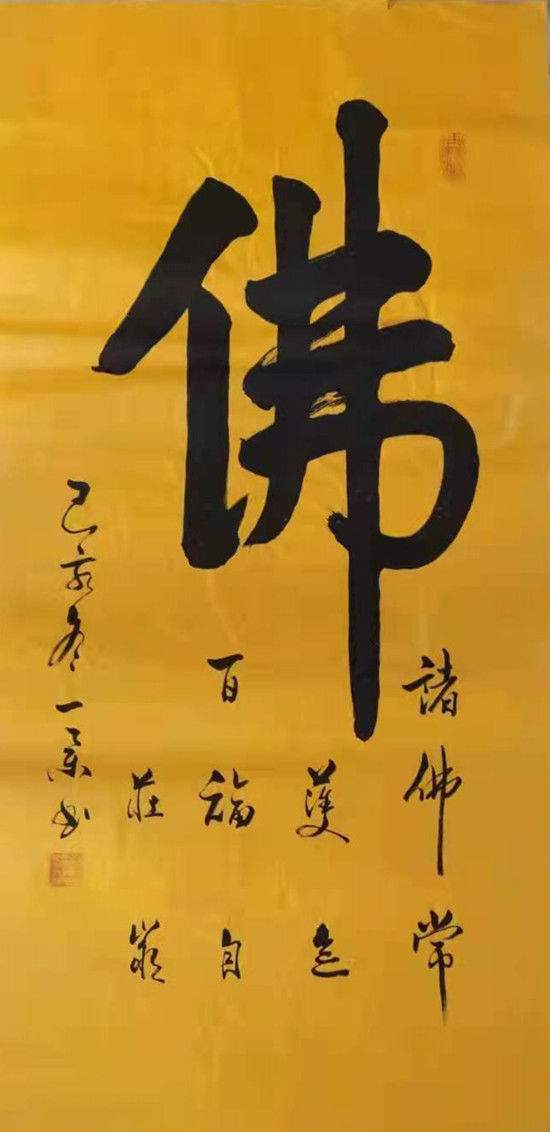 佛
諸佛常
護念
百福自
莊嚴
己亥冬一书